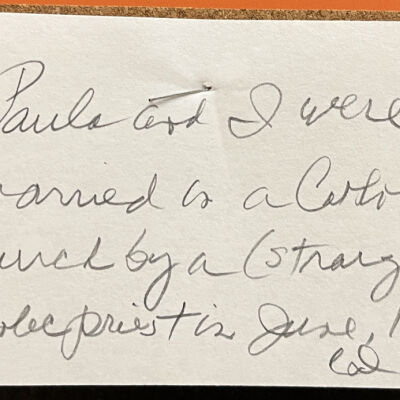 Paula and I were
married in a Catho
urch by a (strang
olic priest in June, 1